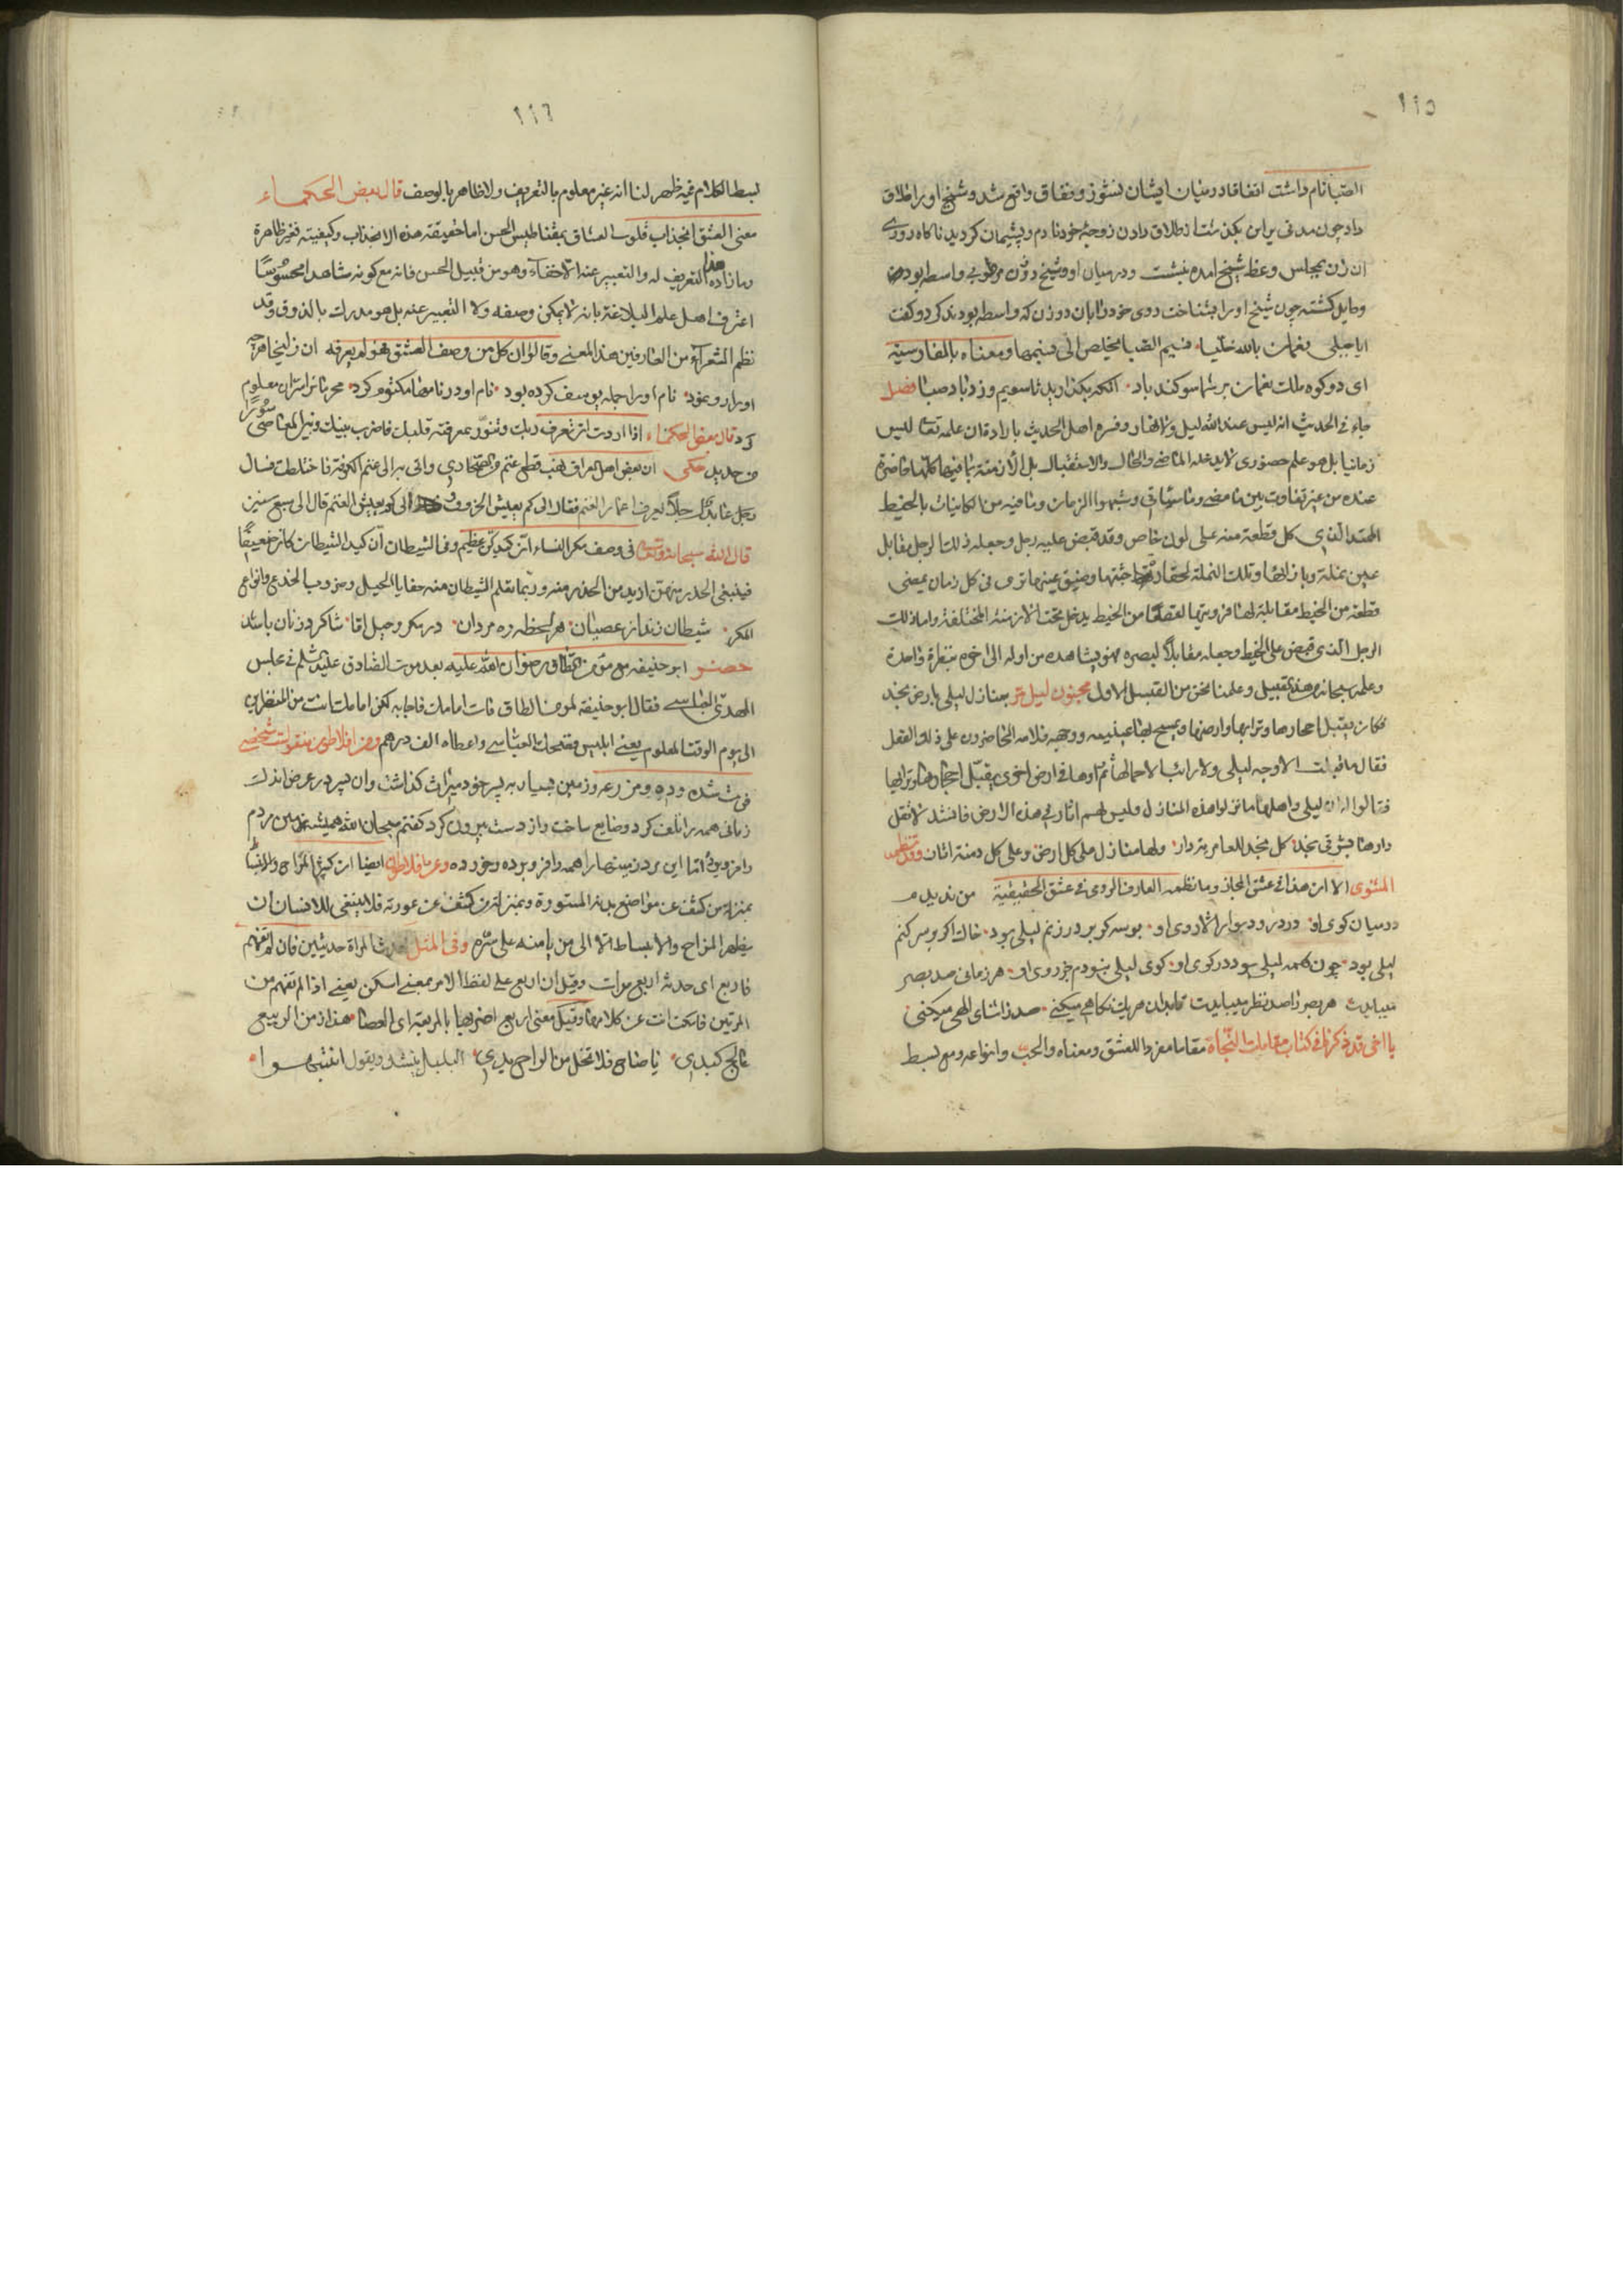 ١١٥
الصبا نام داشت اتفاقا در میان ایشان نشوز و نفاق واقع شد و شیخ او را طلاق
داد چون مدتی بر این بگذشت از طلاق دادن زوجهٔ خود نادم و پشیمان گردید ناگاه روزی
ان زن بمجلس وعظ شیخ امده بنشست و در میان او و شیخ دو زن واسطه بودند
و حایل گشته چون شیخ او را بشناخت روی خود را بان دو زن که واسطه بودند کرد و گفت
ایا جبلی نعمان بالله خلّیا نسیم الصبا یخلص الی نسیمها و معناه بالفارسیة
ای دو کوه ملک نعمان بر شما سوکند باد فصل
جاء فی الحدیث انه لیس عند الله لیل ولا نهار وفسره اهل الحدیث بالارادة ان علمه تعالی لیس
زمانیا بل هو علم حضوری لا یدخله الماضی والحال والاستقبال بل الازمنة بما فیها کلها حاضرة
عنده من غیر تفاوت بین ما مضی وما سیأتی وشبهوا الزمان وما فیه من الکائنات بالخیط
الممتد الذی کل قطعة منه علی لون خاص وقد قبض علیه رجل وجعله ذلک الرجل مقابل
عین نملة وتلک النملة لحقارة جثتها وضیق عینها تری فی کل زمان یمضی
قطعة من الخیط مقابلة لها من الخیط یدخل تحت الازمنة المختلفة واما ذلک
الرجل الذی قبض علی الخیط وجعله مقابلا لبصره فهو یشاهده من اوله الی اخره بنظرة واحدة
وعلمه سبحانه من هذا القبیل وعلمنا نحن من القبیل الاول مجنون لیلی مر بمنازل لیلی بارض نجد
فکان یقبل احجارها وترابها وارضها ویمسح بها عینیه ووجهه فلامه الحاضرون علی ذلک الفعل
فقال ما قبلت الا وجه لیلی ولا رایت الا جمالها ثم راوها فی ارض اخری یقبّل احجارها وترابها
فقالوا له ان لیلی واهلها ما نزلوا هذه المنازل ولیس لهم اثار فی هذه الارض فانشد لا تقل
دارها بشرقی نجد کل نجد للعامریة دار ولها منازل علی کل ارض وعلی کل دمنة اثار وقد نظم
المثنوی الا ان هذا فی عشق المجاز وما نظمه العارف الرومی فی عشق الحقیقیة من ندیدم
در میان کوی او در در و دیوار الا روی او بوسه کر بر در زنم لیلی بود خاک اکر بر سر کنم
لیلی بود چون همه لیلی بود در کوی او کوی لیلی نبودم جز روی او هر زمانی صد بصر
میبایدت هر بصر را صد نظر میبایدت تا بدان هر یک نکاهی میکنی صد تماشای الهی میکنی
یا اخی قد ذکرنا فی کتاب مقامات النجاة مقاما مفردا للعشق ومعناه والحب وانواعه ومع بسط
١١٦
بسط الکلام فیه ظهر لنا انه غیر معلوم بالتعریف ولا ظاهر بالوصف قال بعض الحکماء
معنی العشق انجذاب قلوب العشاق بمغناطیس الحسن اما حقیقة هذه الانجذاب وکیفیته فغیر ظاهرة
وما زاده هذا التعریف له والتعبیر عنه الا خفاء وهو من قبیل الحسن فانه مع کونه شاهدا محسوسًا
اعترف اهل علم البلاغة بانه لا یمکن وصفه ولا التعبیر عنه بل هو مدرک بالذوق وقد
نظم الشعراء من العارفین هذا المعنی وقالوا ان کل من وصف العشق فهو لم یعرفه ان زلیخا هرچه
او را رو نمود نام او را جمله یوسف کرده بود نام او در نامها مکتوم کرد محرمان را سر ان معلوم
کرد قال بعض الحکماء اذا اردت ان تعرف ربک وتنوّر بمعرفته قلبک فاضرب بینک وبین المعاصی سورا
من حدید حکی ان بعض اهل العراق نهب قطیع غنم واتی به الی غنم الکوفة فاختلطت فسال
رجل عابد رجلا یعرف اعمار الغنم فقال الی کم یعیش الخروف الی کم یعیش الغنم قال الی سبع سنین
قال الله سبحانه وتعالی فی وصف مکر النساء ان کیدکن عظیم وفی الشیطان ان کید الشیطان کان ضعیفا
فینبغی الحذر منهن ازید من الحذر منه وربما تعلم الشیطان منهن خفایا الحیل وضروب الخدع وانواع
المکر شیطان زند از عصیان هر لحظه ره مردان در مکر و حیل اما شاکرد زنان باشد
حضر ابو حنیفه مع مؤمن الطاق رضوان الله علیه بعد موت الصادق علیه السلم فی مجلس
المهدی العباسی فقال ابو حنیفة لمؤمن الطاق مات امامک فاجابه لکن امامک انت من المنظرین
الی یوم الوقت المعلوم یعنی ابلیس فضحک العباسی واعطاه الف درهم و از افلاطون منقولست شخصی
فوت شده و ده و مزرعه و زمین بسیار به پسر خود میراث گذاشت و ان پسر در عرض اندک
زمانی همه را تلف کرد و ضایع ساخت و از دست بیرون کرد گفتم سبحان الله همیشه زمین مردم
را فرو برد اما این مرد زمینها را همه را فرو برده و خورده وعن افلاطون ایضا ان کثرة المزاح
بمنزلة من کشف عن مواضع بدنه المستورة وبمنزلة من کشف عن عورته فلا ینبغی للانسان ان
یظهر المزاح والانبساط الا الی من یامنه علی سره وفی المثل حدث المراة حدیثین فان لم تفهم
فاربع ای حدثه اربع مرات وقیل ان اربع علی لفظ الامر بمعنی اسکن یعنی اذا لم تفهم من
المرتین فاسکت انت عن کلامها وقیل معنی اربع اضربها بالمربعة ای العصا هذا زمن الربیع
عالج کبدی یا صاح فلا تخل من الراح یدی البلبل ینشد ویقول انتبهوا